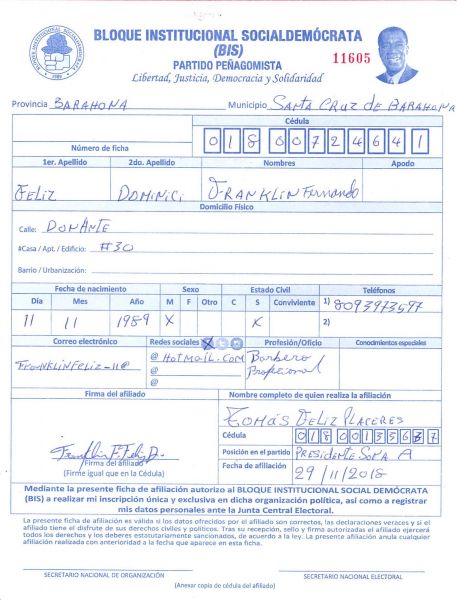 BLOQUE INSTITUCIONAL SOCIALDEMÓCRATA
(BIS)
PARTIDO PEÑAGOMISTA
11605
Libertad, Justicia, Democracia y Solidaridad
Provincia BARAHONA Municipio SANTA CRUZ DE BARAHONA
Cédula
Número de ficha 018 0072464 1
1er. Apellido 2do. Apellido Nombres Apodo
FELIZ DOMINICI FRANKLIN Fernando
Domicilio Físico
Calle: DONANTE
#Casa / Apt. / Edificio: #30
Barrio / Urbanización:
Fecha de nacimiento Sexo Estado Civil Teléfonos
Día Mes Año M F Otro C S Conviviente 1) 8093973597
11 11 1989 X X 2)
Correo electrónico Redes sociales Profesión/Oficio Conocimientos especiales
FranKLINFeLiz-11@ @ HotMaiL.com Barbero
@ Profecional
@
Firma del afiliado Nombre completo de quien realiza la afiliación
TOMÁS FELIZ PLACERES
Cédula 018 0013568 7
Posición en el partido PRESIDENTE SOMA A
Firma del afiliado Fecha de afiliación 29/11/2018
(Firme igual que en la Cédula)
Mediante la presente ficha de afiliación autorizo al BLOQUE INSTITUCIONAL SOCIAL DEMÓCRATA
(BIS) a realizar mi inscripción única y exclusiva en dicha organización política, así como a registrar
mis datos personales ante la Junta Central Electoral.
La presente ficha de afiliación es válida si los datos ofrecidos por el afiliado son correctos, las declaraciones veraces y si el
afiliado tiene el disfrute de sus derechos civiles y políticos. Tras su recepción, sello y firma autorizadas el afiliado ejercerá
todos los derechos y los deberes estatutariamente sancionados, de acuerdo a la ley. La presente afiliación anula cualquier
afiliación realizada con anterioridad a la fecha que aparece en esta ficha.
SECRETARIO NACIONAL DE ORGANIZACIÓN SECRETARIO NACIONAL ELECTORAL
(Anexar copia de cédula del afiliado)